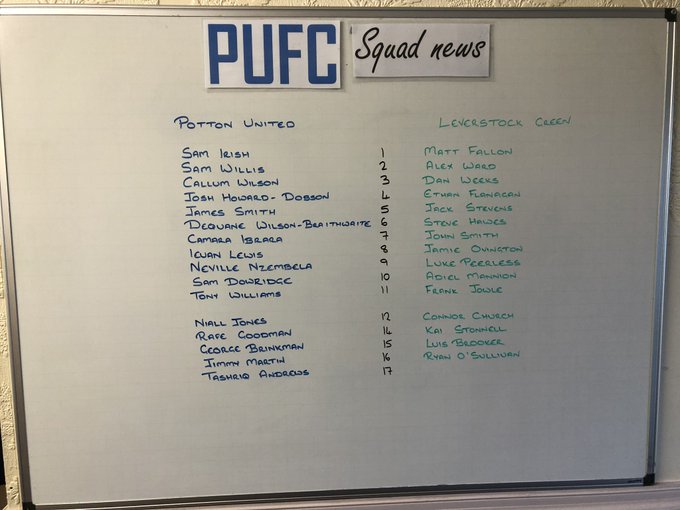 PUFC Squad news
POTTON UNITED LEVERSTOCK GREEN
SAM IRISH 1 MATT FALLON
SAM WILLIS 2 ALEX WARD
CALLUM WILSON 3 DAN WEEKS
JOSH HOWARD-DOBSON 4 ETHAN FLANAGAN
JAMES SMITH 5 JACK STEVENS
DEQUANE WILSON-BRAITHWAITE 6 STEVE HAWES
CAMARA IBRARA 7 JOHN SMITH
IEUAN LEWIS 8 JAMIE OVINGTON
NEVILLE NZEMBELA 9 LUKE PEERLESS
SAM DOWRIDGE 10 ADIEL MANNION
TONY WILLIAMS 11 FRANK JOWLE
NIALL JONES 12 CONNOR CHURCH
RAFE GOODMAN 14 KAI STONNELL
GEORGE BRINKMAN 15 LUIS BROOKER
JIMMY MARTIN 16 RYAN O'SULLIVAN
TASHRIQ ANDREWS 17